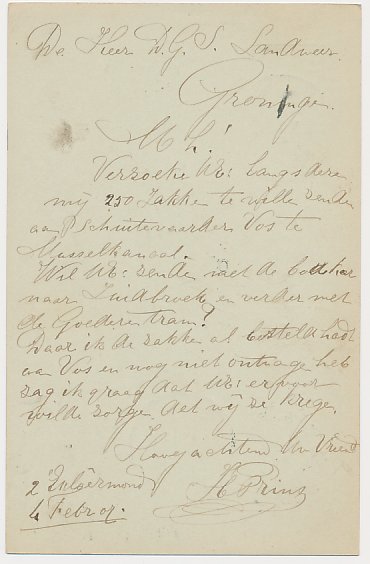 De Heer D.G.S. Landweer
Groningen
M H!
Verzoeke UE: langs deze
mij 250 zakken te wille zenden
aan P Schuitevaarder Vos te
Musselkanaal.
Wil UE: zenden met de
naar Zuidbroek en verder met
de Goederentram?
Daar ik de zakken al besteld hadt
aan Vos en nog niet ontvage heb
zag ik graag dat UE: er voor
wilde zorgen dat wij ze krege
Hoogachtend Uw Vriend
H Prins
2e Exloërmond
4 Febr 07.